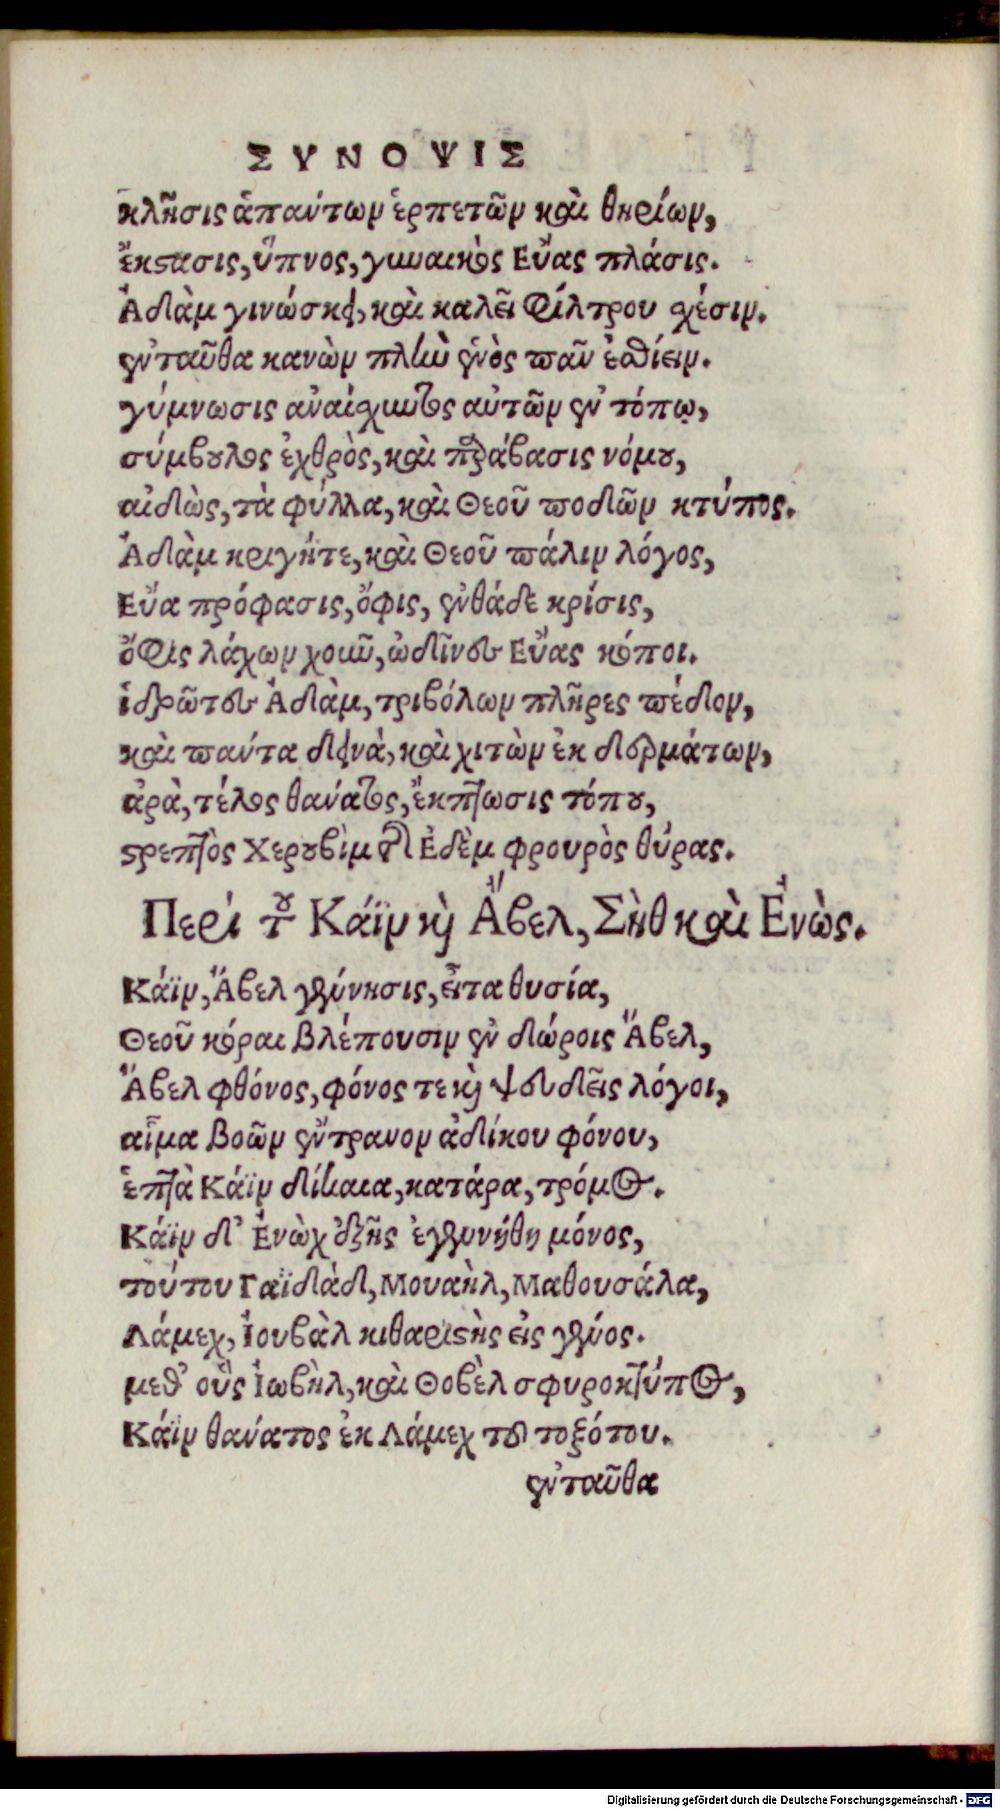 ΣΥΝΟΨΙΣ
κλῆσις ἁπαντων ἑρπετῶν καὶ θηρίων,
ἔκστασις, ὕπνος, γυναικὸς Εὔας πλάσις.
Ἀδὰμ γινώσκει, καὶ καλεῖ φίλτρου χέσιν.
ἐνταῦθα κανὼν πλὴν ἑνὸς πᾶν ἐσθίειν.
γύμνωσις ἀναίσχυντος αὐτῶν ἐν τόπῳ,
σύμβουλος ἐχθρὸς, καὶ παράβασις νόμου,
αἰδὼς, τὰ φύλλα, καὶ Θεοῦ ποδῶν κτύπος.
Ἀδὰμ κριγήτε, καὶ Θεοῦ πάλιν λόγος,
Εὔα πρόφασις, ὄφις, ἐνθάδε κρίσις,
ὄφις λάχων χοῦν, ὠδῖνες Εὔας κόποι.
ἱδρῶτες Ἀδὰμ, τριβόλων πλῆρες πέδον,
καὶ παντα δεινὰ, καὶ χιτὼν ἐκ δερμάτων,
ἀρὰ, τέλος θανάτος, ἔκπτωσις τόπου,
στρεπτὸς Χερουβὶμ τῆς Ἐδὲμ φρουρὸς θύρας.
Περὶ τοῦ Κάϊν καὶ Ἄβελ, Σὴθ καὶ Ἐνὼς.
Κάϊν, Ἄβελ γέννησις, εἶτα θυσία,
Θεοῦ κόραι βλέπουσιν ἐν δώροις Ἄβελ,
Ἄβελ φθόνος, φόνος τε καὶ ψευδεῖς λόγοι,
αἷμα βοῶν ἔντρανον ἀδίκου φόνου,
ἑπτὰ Κάϊν δίκαια, κατάρα, τρόμος.
Κάϊν δ' Ἐνὼχ ἑξῆς ἐγεννήθη μόνος,
τούτου Γαϊδὰδ, Μουαὴλ, Μαθουσάλα,
Λάμεχ, Ἰουβὰλ κιθαριστὴς εἰς γένος.
μεθ' οὓς Ἰωβὴλ, καὶ Θοβὲλ σφυροκτύπος,
Κάϊν θανάτος ἐκ Λάμεχ τοῦ τοξότου.
ἐνταῦθα
Digitalisierung gefördert durch die Deutsche Forschungsgemeinschaft - DFG